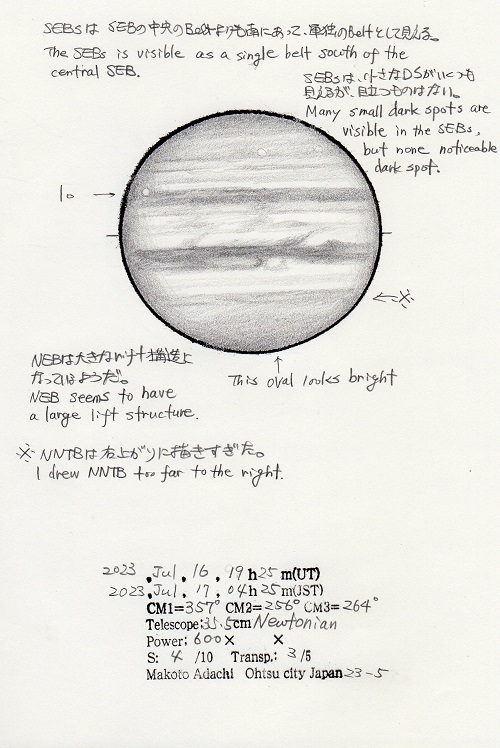 SEBsは SEBの中央のBeltよりも南にあって、単独のBeltとして見える。
The SEBs is visible as a single belt south of the
central SEB.
SEBsは、小さなDSがいくつも
見えるが、目立つものはない。
Many small dark spots are
visible in the SEBs,
but none noticeable
dark spot.
Io →
←※
NEBは大きな リフト構造と
なっているようだ。
NEB seems to have
a large lift structure.
This oval looks bright
※ NNTBは右上がりに描きすぎた。
I drew NNTB too far to the right.
2023, Jul, 16, 19h25m(UT)
2023, Jul, 17, 04h25m(JST)
CM1=357° CM2=256° CM3=264°
Telescope:35.5cm Newtonian
Power: 600× ×
S: 4 /10 Transp.: 3 /5
Makoto Adachi Ohtsu city Japan 23-5